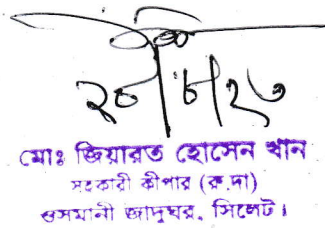 মোঃ জিয়ারত হোসেন খান
সহকারী কীপার (রু.দা)
ওসমানী জাদুঘর, সিলেট।